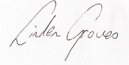 Linden Groves